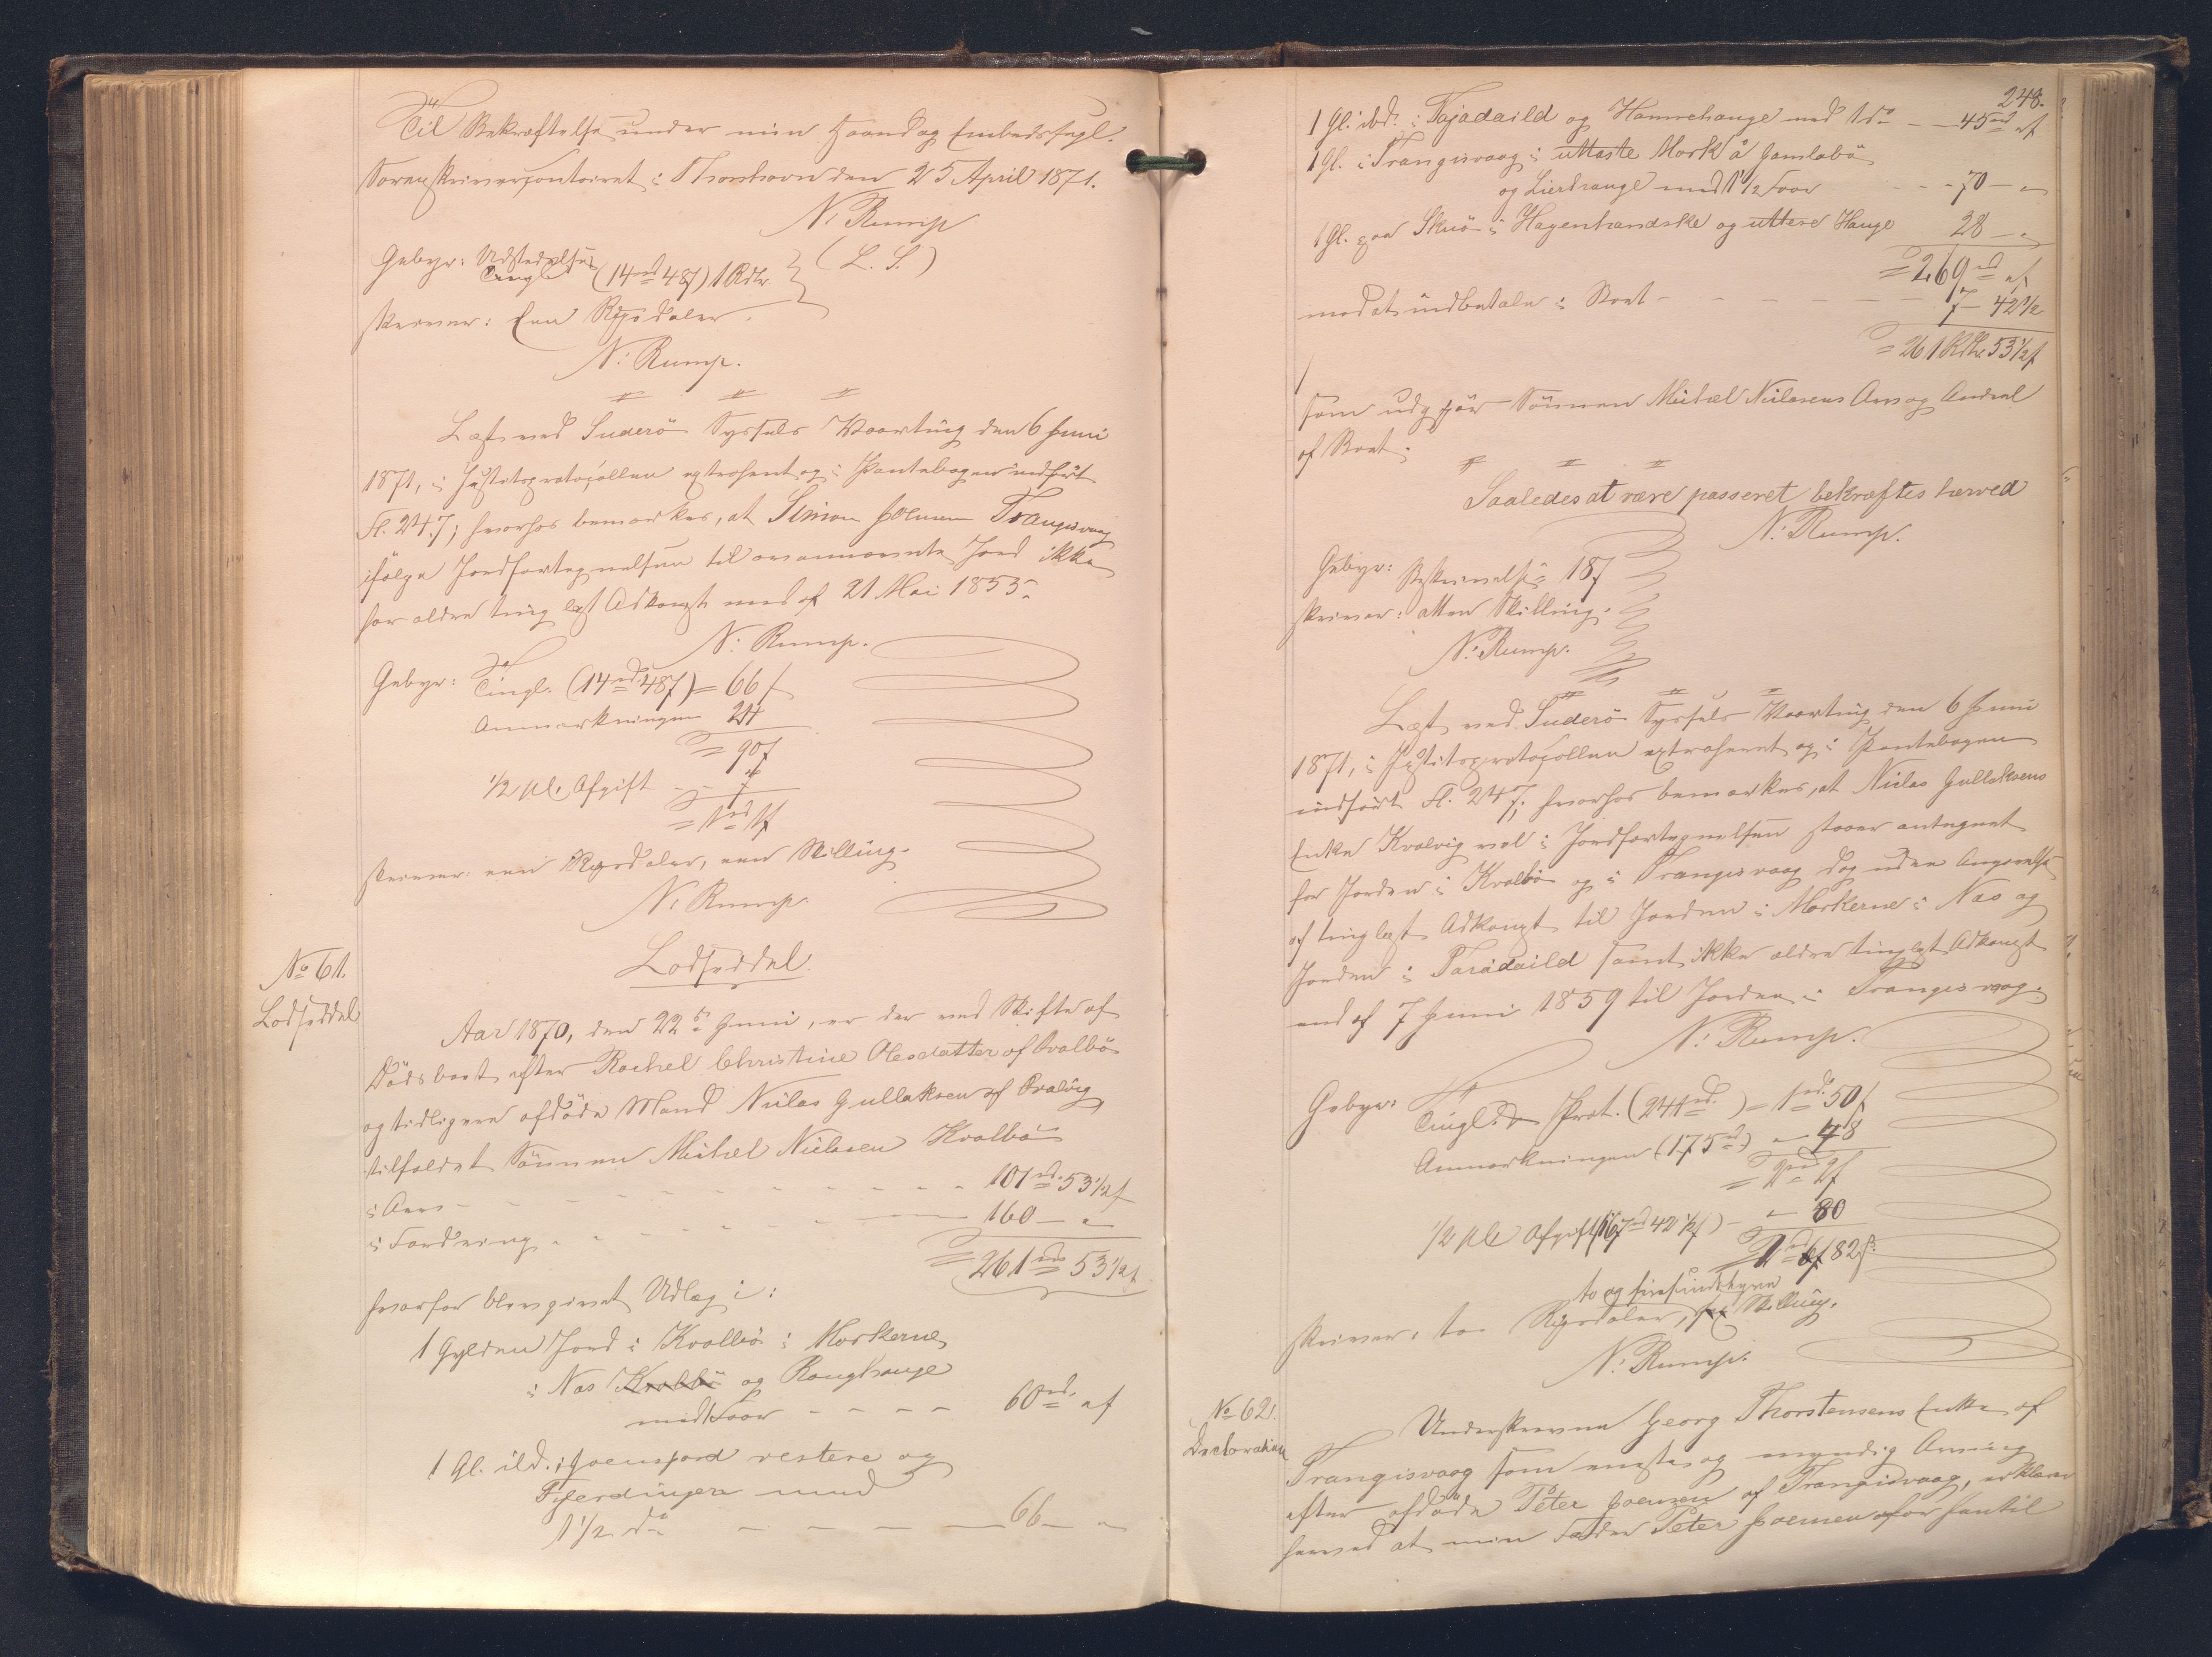 Til Bekræftelse under min Haand og Embedssegl.
Sorenskrivercontoiret i Thorshavn den 25 April 1871.
N. Rump
(L. S.)
Gebyr: Udstedelse
Tingl. (14 rd 48 ß) 1 Rdlr.
skriver: een Rigsdaler.
N. Rump.
Læst ved Suderö Syssels Vaarting den 6 Juni
1871, i Justitsprotocollen extraheret og i Pantebogen indført
Fl. 247; hvorhos bemærkes, at Simon Joensen Trangisvaag
ifølge Jordfortegnelsen til ovennævnte Jord ikke
har ældre tinglæst Adkomst end af 21 Mai 1855.
N. Rump.
Gebyr: Tingl. (14 rd 48 ß) = 66 ß
Anmærkningen 24
= 90 ß
1/2 pCt. Afgift - 7
= 1 rd 1 ß
skriver: een Rigsdaler, een Skilling.
N. Rump.
No 61.
Lodseddel
Lodseddel
Aar 1870, den 22de Juni, er der ved Skifte af
Dödsboet efter Rachel Christine Olesdatter af Qvalbö
og tidligere afdöde Mand Niclas Gullaksen af Qvalvig
tilfaldet Sönnen Michel Niclasen Kvalbö
i Arv - - - 101 rd 53 1/2 ß
i Fordring - - - 160 - "
= 261 rd 53 1/2 ß
hvorfor blev givet Udlæg i:
1 Gylden Jord i Kvalbö i Mörkerne
i Næs Kvalbö og Roughauge
med Foer - - - - 60 rd. " ß
1 Gl. ibd. i Joensjord vestere og
Fjerdingen med
1 1/2 do - - - - 66 - "
248.
1 Gl. ibd. i Tajadaild og Hamrehauge med 1 do - 45 rd " ß
1 Gl. i Trangisvaag i uttaste Mork å Gamlebö
og Lierhauge med 1 1/2 Foer - - - 70 - "
1 Gl. paa Skuö i Hagenhandske og uttere Hauge 28 - "
= 269 rd " ß
mod at indbetale i Boet - - - - - 7 - 42 1/2
= 261 Rdlr 53 1/2 ß
som udgjör Sönnen Michel Niclasens Arv og Andeel
af Boet.
Saaledes at være passeret bekræftes herved
N. Rump.
Gebyr: Beskrivelse 18 ß
skriver: atten Skilling.
N. Rump.
Læst ved Suderö Syssels Vaarting den 6 Juni
1871, i Justitsprotocollen extraheret og i Pantebogen
indfört Fl. 247; hvorhos bemærkes, at Niclas Gullaksens
Enke Kvalvig vel i Jordfortegnelsen staaer antegnet
for Jorden i Kvalbö og i Trangisvaag dog uden Angivelse
af tinglæst Adkomst til Jorden i Mörkerne i Næs og
Jorden i Taradaild samt ikke ældre tinglæst Adkomst
end af 7 Juni 1859 til Jorden i Trangisvaag.
N. Rump.
Gebyr: Tingl. Prot. (241 rd.) = 1 rd. 50 ß
Anmærkningen (175 rd) - 48
= 2 rd 2 ß
1/2 pCt Afgift (167 rd 42 1/2 ß) - " 80
2 rd 82 ß
to og firsindstyve
skriver: to Rigsdaler, Skilling.
N. Rump.
No 62.
Declaration
Underskrevne Georg Thorstensens Enke af
Trangisvaag som eneste og myndig Arving
efter afdöde Peter Joensen af Trangisvaag, erklærer
herved at min Fader Peter Joensen har hentil